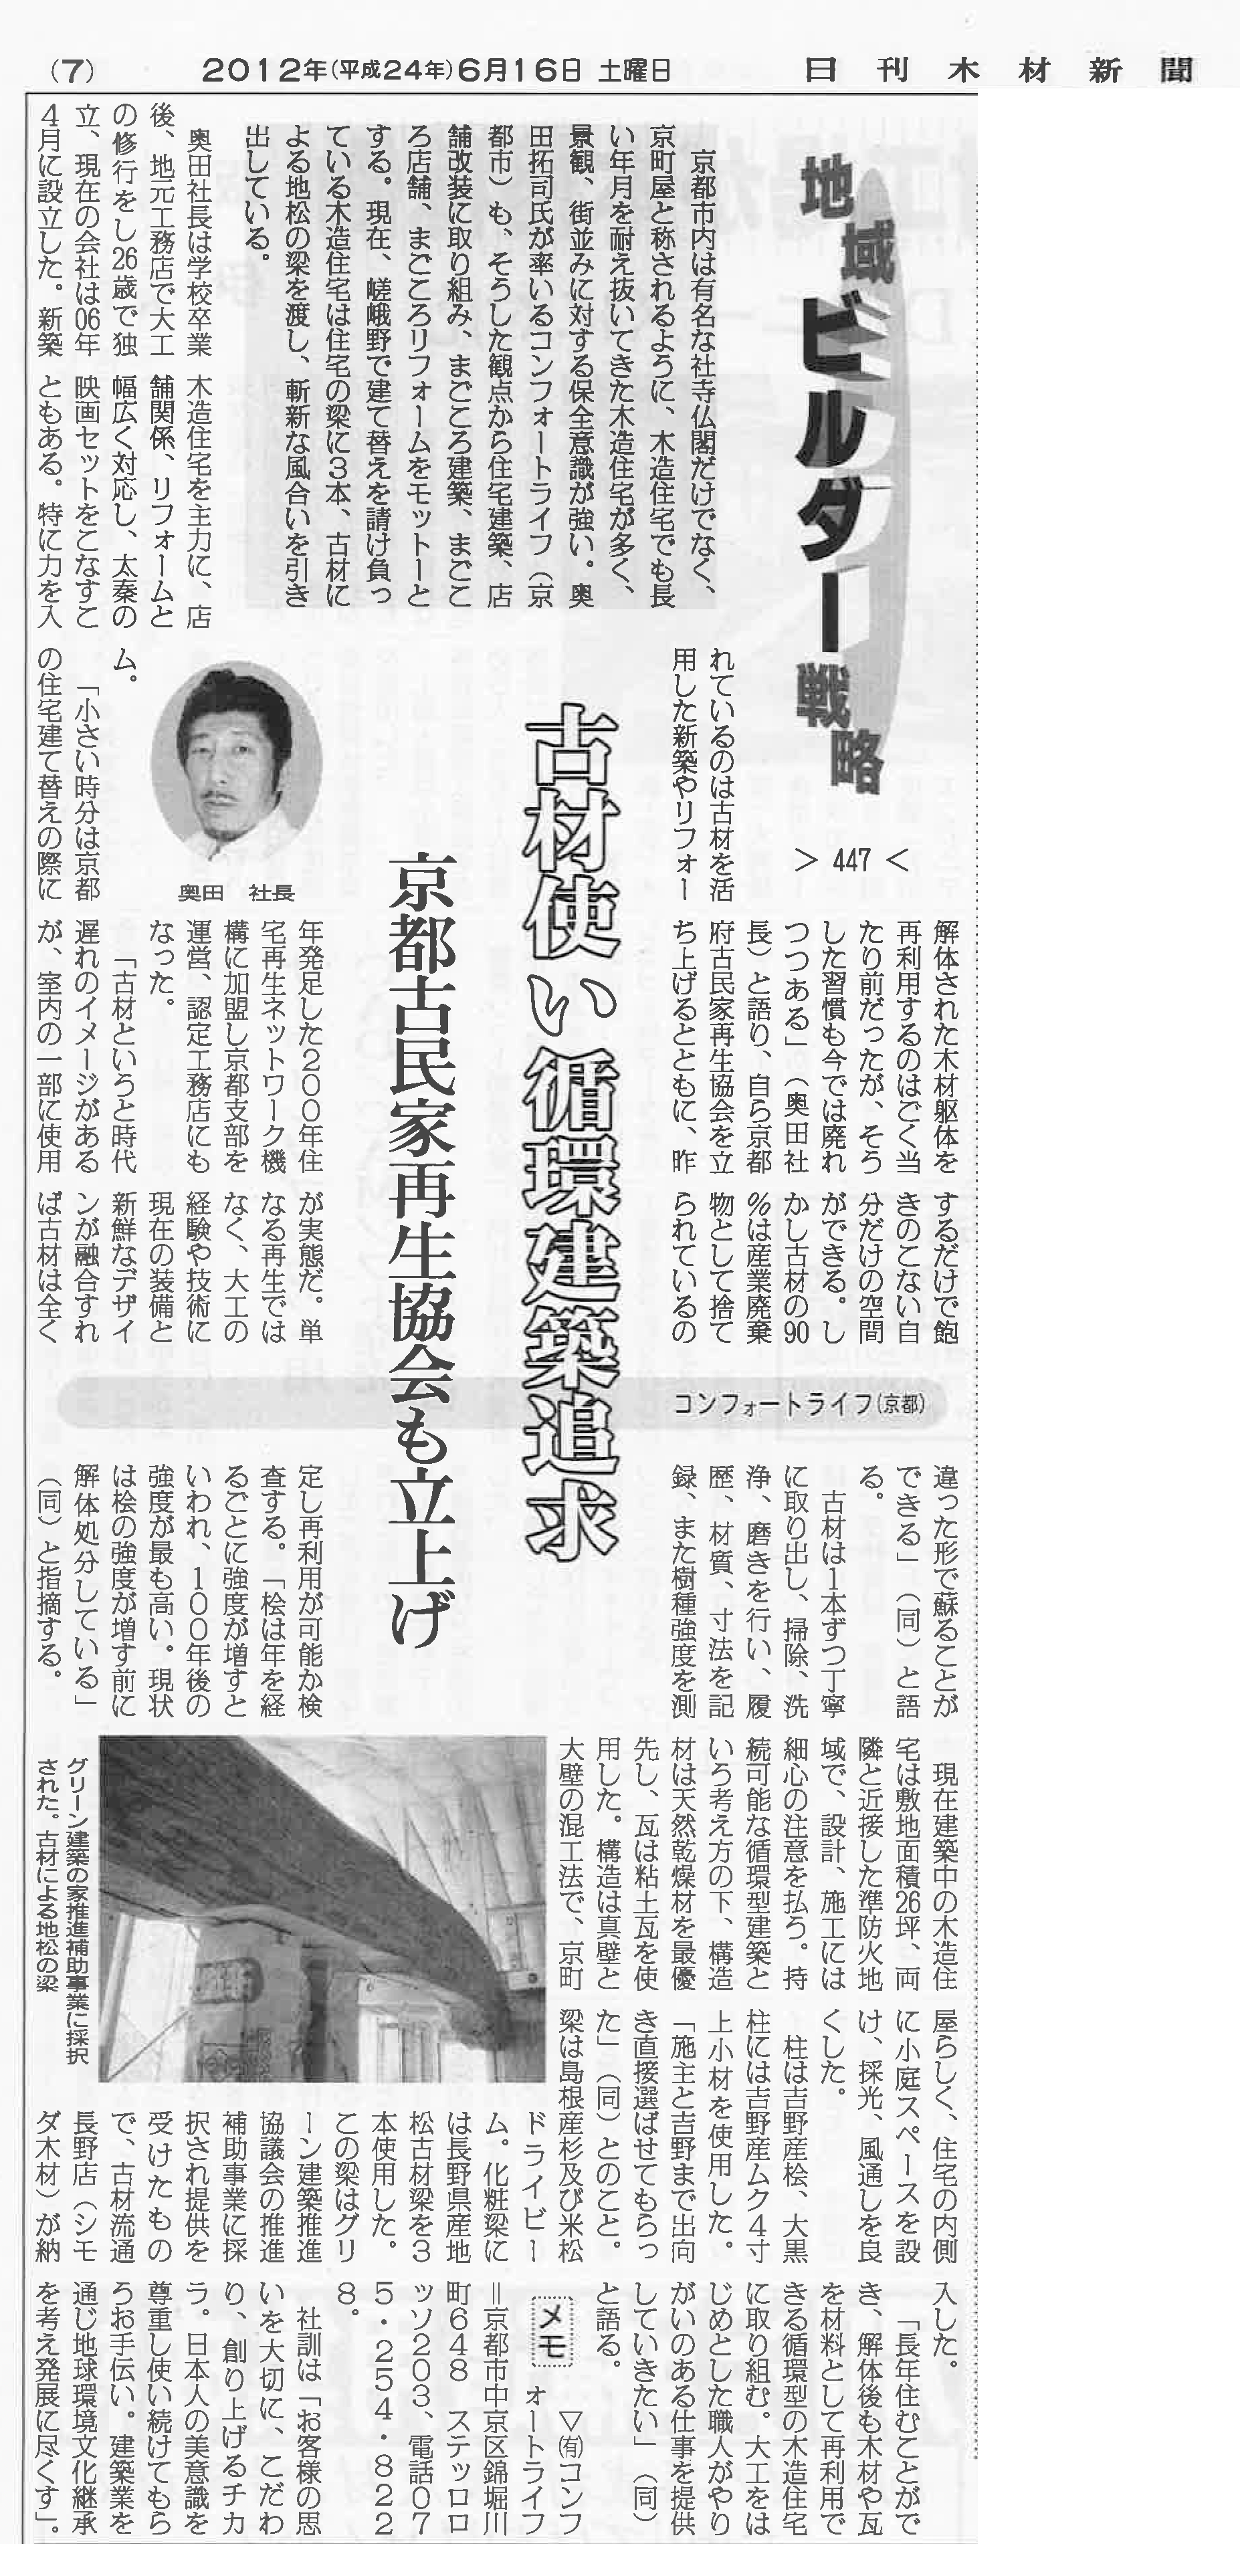 (7)
2012年(平成24年)6月16日 土曜日
日刊木材新聞
地域ビルダー戦略
＞447＜
古材使い循環建築追求
京都古民家再生協会も立上げ
コンフォートライフ(京都)
京都市内は有名な社寺仏閣だけでなく、
京町屋と称されるように、木造住宅でも長
い年月を耐え抜いてきた木造住宅が多く、
景観、街並みに対する保全意識が強い。奥
田拓司氏が率いるコンフォートライフ（京
都市）も、そうした観点から住宅建築、店
舗改装に取り組み、まごころ建築、まごこ
ろ店舗、まごころリフォームをモットーと
する。現在、嵯峨野で建て替えを請け負っ
ている木造住宅は住宅の梁に3本、古材に
よる地松の梁を渡し、斬新な風合いを引き
出している。
奥田社長は学校卒業
後、地元工務店で大工
の修行をし26歳で独
立、現在の会社は06年
4月に設立した。新築
木造住宅を主力に、店
舗関係、リフォームと
幅広く対応し、太秦の
映画セットをこなすこ
ともある。特に力を入
れているのは古材を活
用した新築やリフォー
ム。
「小さい時分は京都
の住宅建て替えの際に
奥田　社長
解体された木材躯体を
再利用するのはごく当
たり前だったが、そう
した習慣も今では廃れ
つつある」（奥田社
長）と語り、自ら京都
府古民家再生協会を立
ち上げるとともに、昨
年発足した200年住
宅再生ネットワーク機
構に加盟し京都支部を
運営、認定工務店にも
なった。
「古材というと時代
遅れのイメージがある
が、室内の一部に使用
するだけで飽
きのこない自
分だけの空間
ができる。し
かし古材の90
％は産業廃棄
物として捨て
られているの
が実態だ。単
なる再生では
なく、大工の
経験や技術に
現在の装備と
新鮮なデザイ
ンが融合すれ
ば古材は全く
違った形で蘇ることが
できる」（同）と語
る。
古材は1本ずつ丁寧
に取り出し、掃除、洗
浄、磨きを行い、履
歴、材質、寸法を記
録、また樹種強度を測
定し再利用が可能か検
査する。「桧は年を経
るごとに強度が増すと
いわれ、100年後の
強度が最も高い。現状
は桧の強度が増す前に
解体処分している」
（同）と指摘する。
現在建築中の木造住
宅は敷地面積26坪、両
隣と近接した準防火地
域で、設計、施工には
細心の注意を払う。持
続可能な循環型建築と
いう考え方の下、構造
材は天然乾燥材を最優
先し、瓦は粘土瓦を使
用した。構造は真壁と
大壁の混工法で、京町
グリーン建築の家推進補助事業に採択
された。古材による地松の梁
屋らしく、住宅の内側
に小庭スペースを設
け、採光、風通しを良
くした。
柱は吉野産桧、大黒
柱には吉野産ムク4寸
上小材を使用した。
「施主と吉野まで出向
き直接選ばせてもらっ
た」（同）とのこと。
梁は島根産杉及び米松
ドライビー
ム。化粧梁に
は長野県産地
松古材梁を3
本使用した。
この梁はグリ
ーン建築推進
協議会の推進
補助事業に採
択され提供を
受けたもの
で、古材流通
長野店（シモ
ダ木材）が納
入した。
「長年住むことがで
き、解体後も木材や瓦
を材料として再利用で
きる循環型の木造住宅
に取り組む。大工をは
じめとした職人がやり
がいのある仕事を提供
していきたい」（同）
と語る。
メモ　▽㈲コンフ
ォートライフ
＝京都市中京区錦堀川
町648　ステッロロ
ッソ203、電話07
5・254・822
8。
社訓は「お客様の思
いを大切に、こだわ
り、創り上げるチカ
ラ。日本人の美意識を
尊重し使い続けてもら
うお手伝い。建築業を
通じ地球環境文化継承
を考え発展に尽くす」。